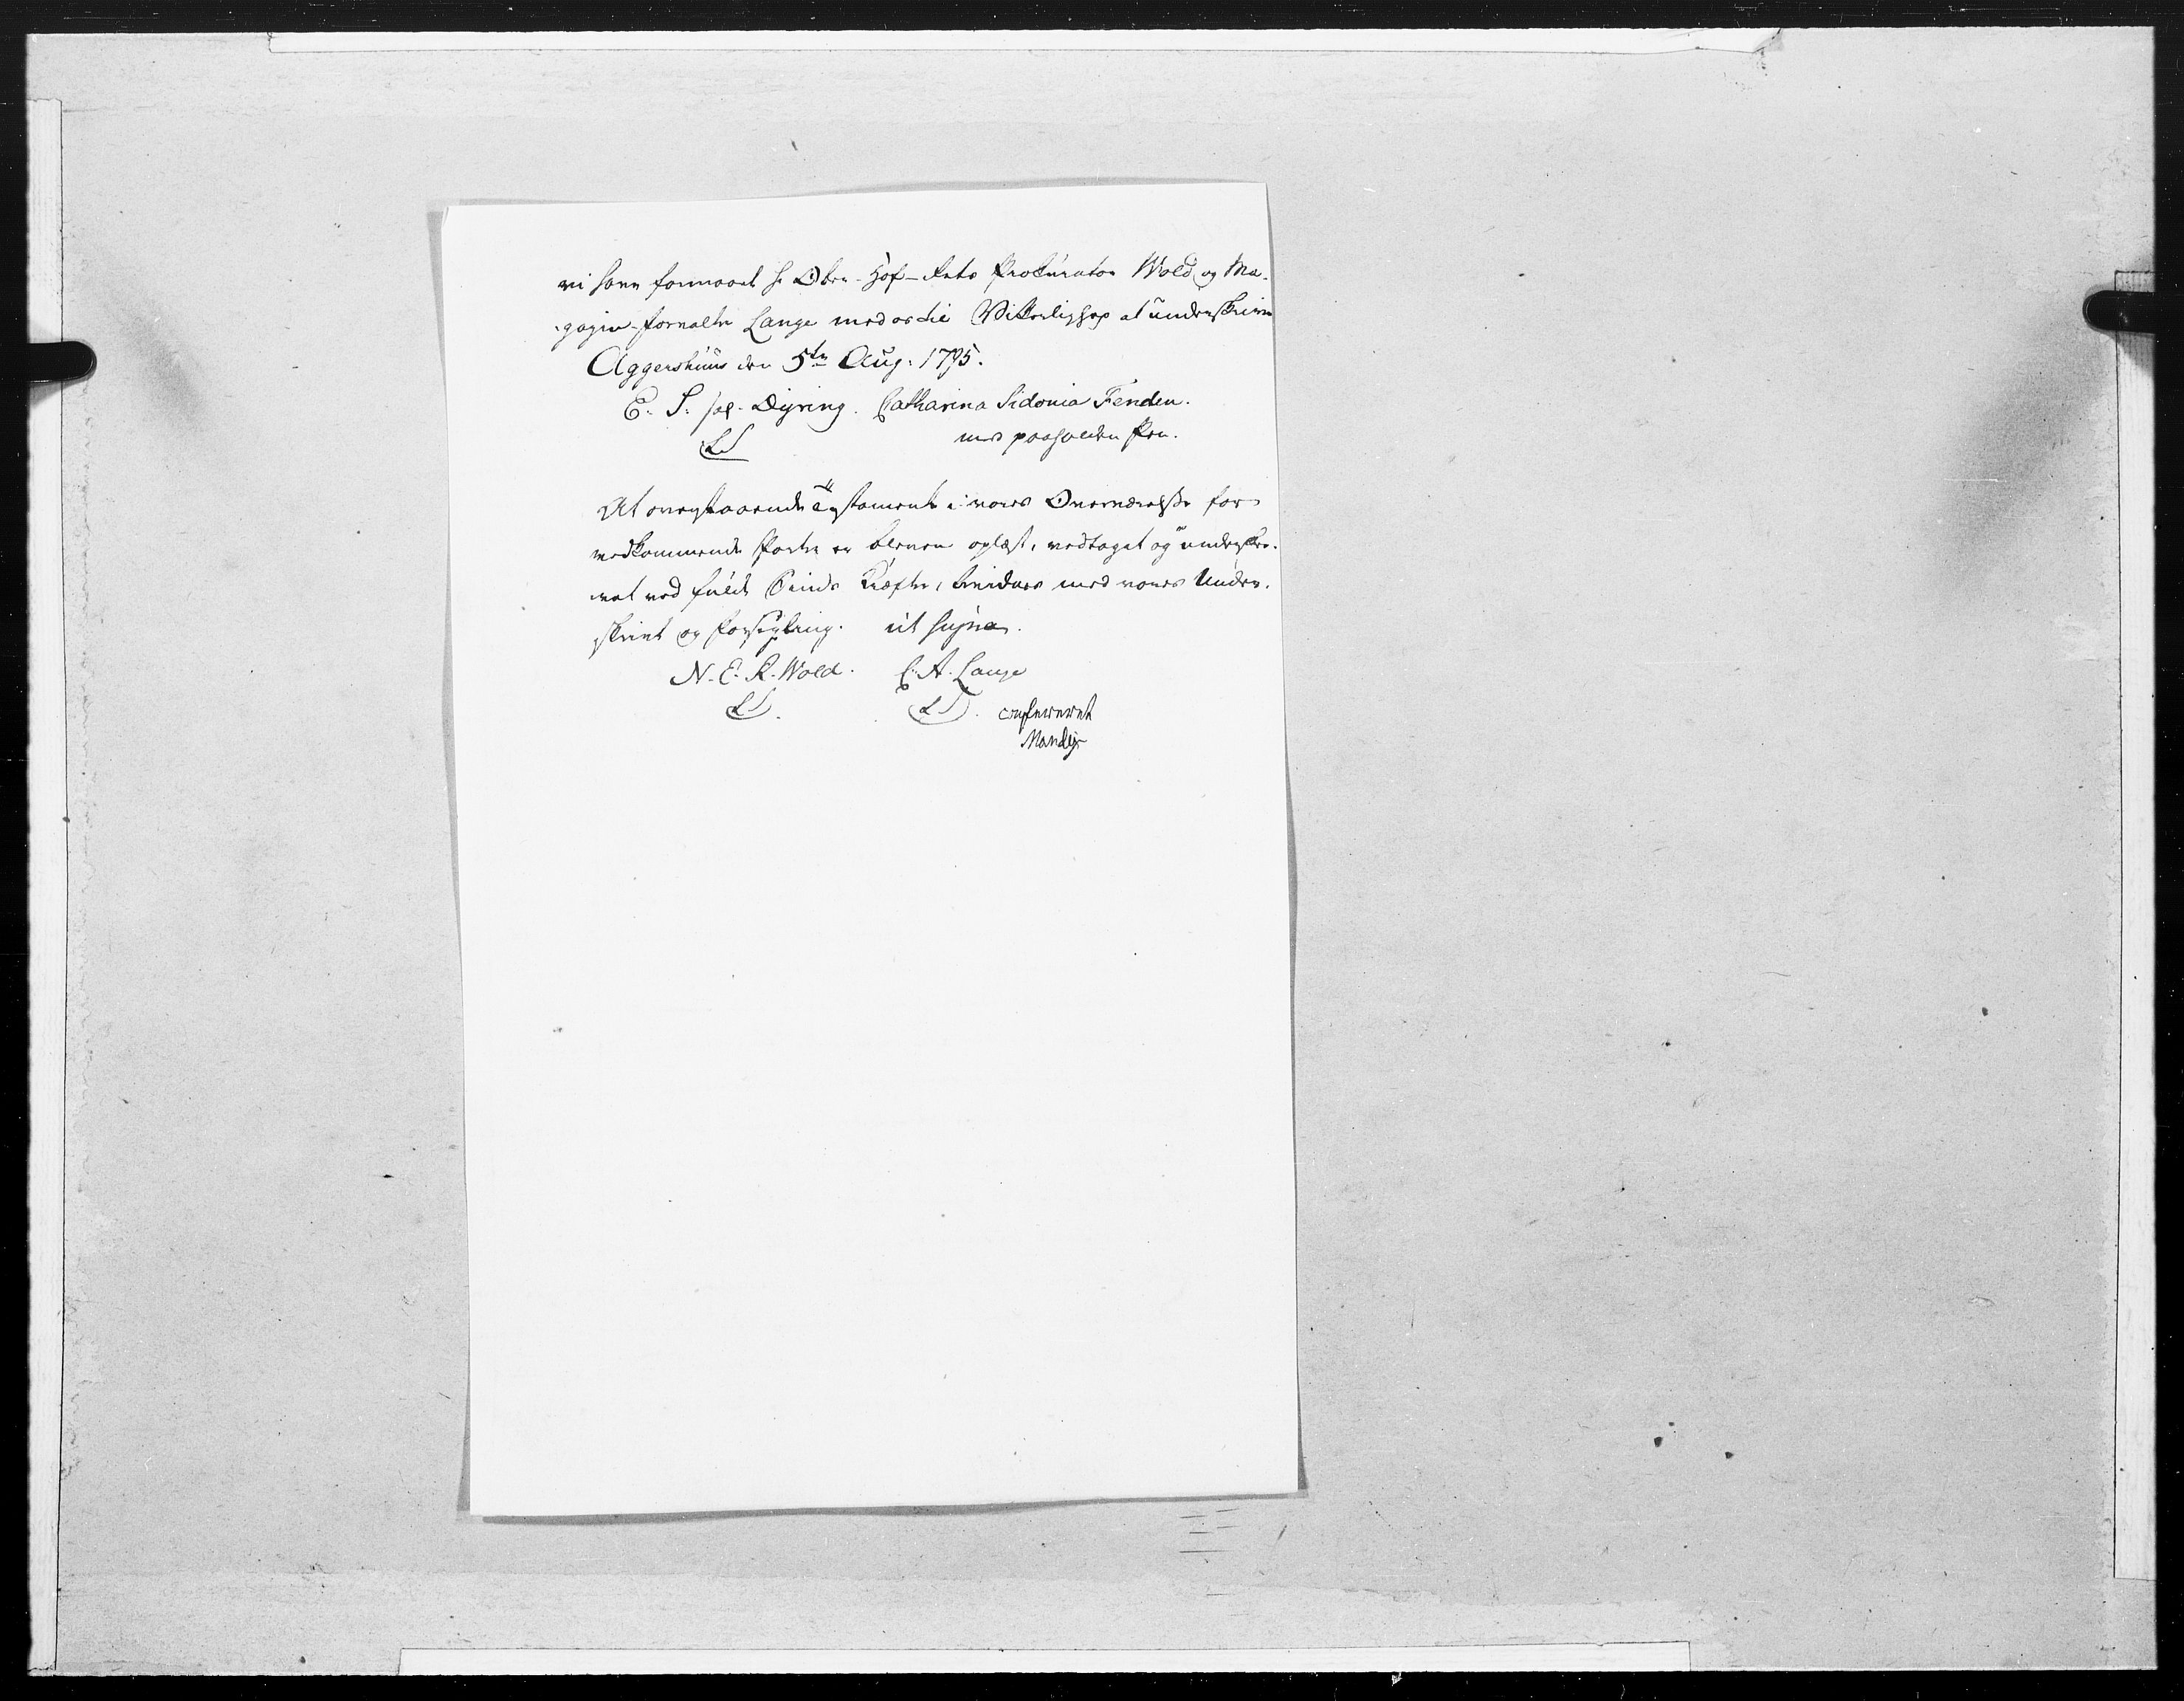 vi have formaaet Hr Ober-Hof-Rets Prokurator Wold og Ma-
gazin-Forvalter Lange med os til Vitterlighed at underskrive
Aggershuus den 5te Aug: 1795.
E. S. sal. Dyring. Catharina Sidonia Fenden.
LS med paaholden Pen.
At ovenstaaende Testamente i vores Overværelse for
vedkommende Parter er bleven oplæst, vedtaget og underskre-
vet ved fulde Sinds Kræfter, bevidnes med vores Under-
skrivt og Forsegling. ut supra.
N. E. R. Wold. C. A. Lange
LS. LS. confereret
Mandix